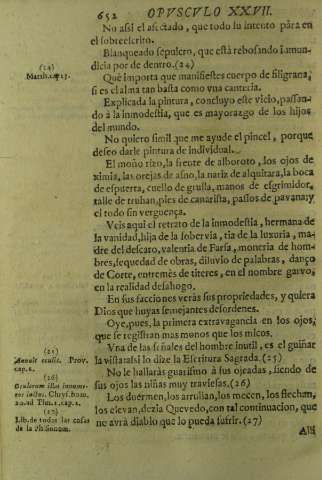 652 OPUSCULO XXVII.
No assi el afectado, que todo su intento pára en
el sobreescrito.
Blanqueado sepulcro, que està rebosando inmun-
dicia por de dentro. (24)
(24)
Matth. cap. 23.
Què importa que manifiestes cuerpo de filigrana,
si es el alma tan basta como vna canteria.
Explicada la pintura, concluyo este vicio, passan-
do à la inmodestia, que es mayorazgo de los hijos
del mundo.
No quiero simil que me ayude el pincel, porque
deseo darle pintura de individual.
El moño rizo, la frente de alboroto, los ojos de
ximia, las orejas de asno, la nariz de alquitara, la boca
de espuerta, cuello de grulla, manos de esgrimidor,
talle de truhan, pies de canarista, passos de pavana; y
el todo sin verguença.
Veis aqui el retrato de la inmodestia, hermana de
la vanidad, hija de la sobervia, tia de la luxuria, ma-
dre del descaro, valentia de Farsa, moneria de hom-
bres, sequedad de obras, diluvio de palabras, danço
de Corte, entremès de titeres, en el nombre garvo,
en la realidad desahogo.
En sus facciones veràs sus propiedades, y quiera
Dios que huyas semejantes desordenes.
Oye, pues, la primera extravagancia en los ojos,
que se registran mas monos que los micos.
Vna de las señales del hombre inutil, es el guiñar
la vista: assi lo dize la Escritura Sagrada. (25)
(25)
Annuit oculis. Prov.
cap. 6.
No le hallaràs guarismo à sus ojeadas, siendo de
sus ojos las niñas muy traviesas. (26)
(26)
Chrys. hom.
Los duermen, los arrullan, los mecen, los flechan,
los elevan, dezia Quevedo, con tal continuacion, que
ne avrà diablo que lo pueda sufrir. (27)
(27)
Lib. de todas las cosas
Alli